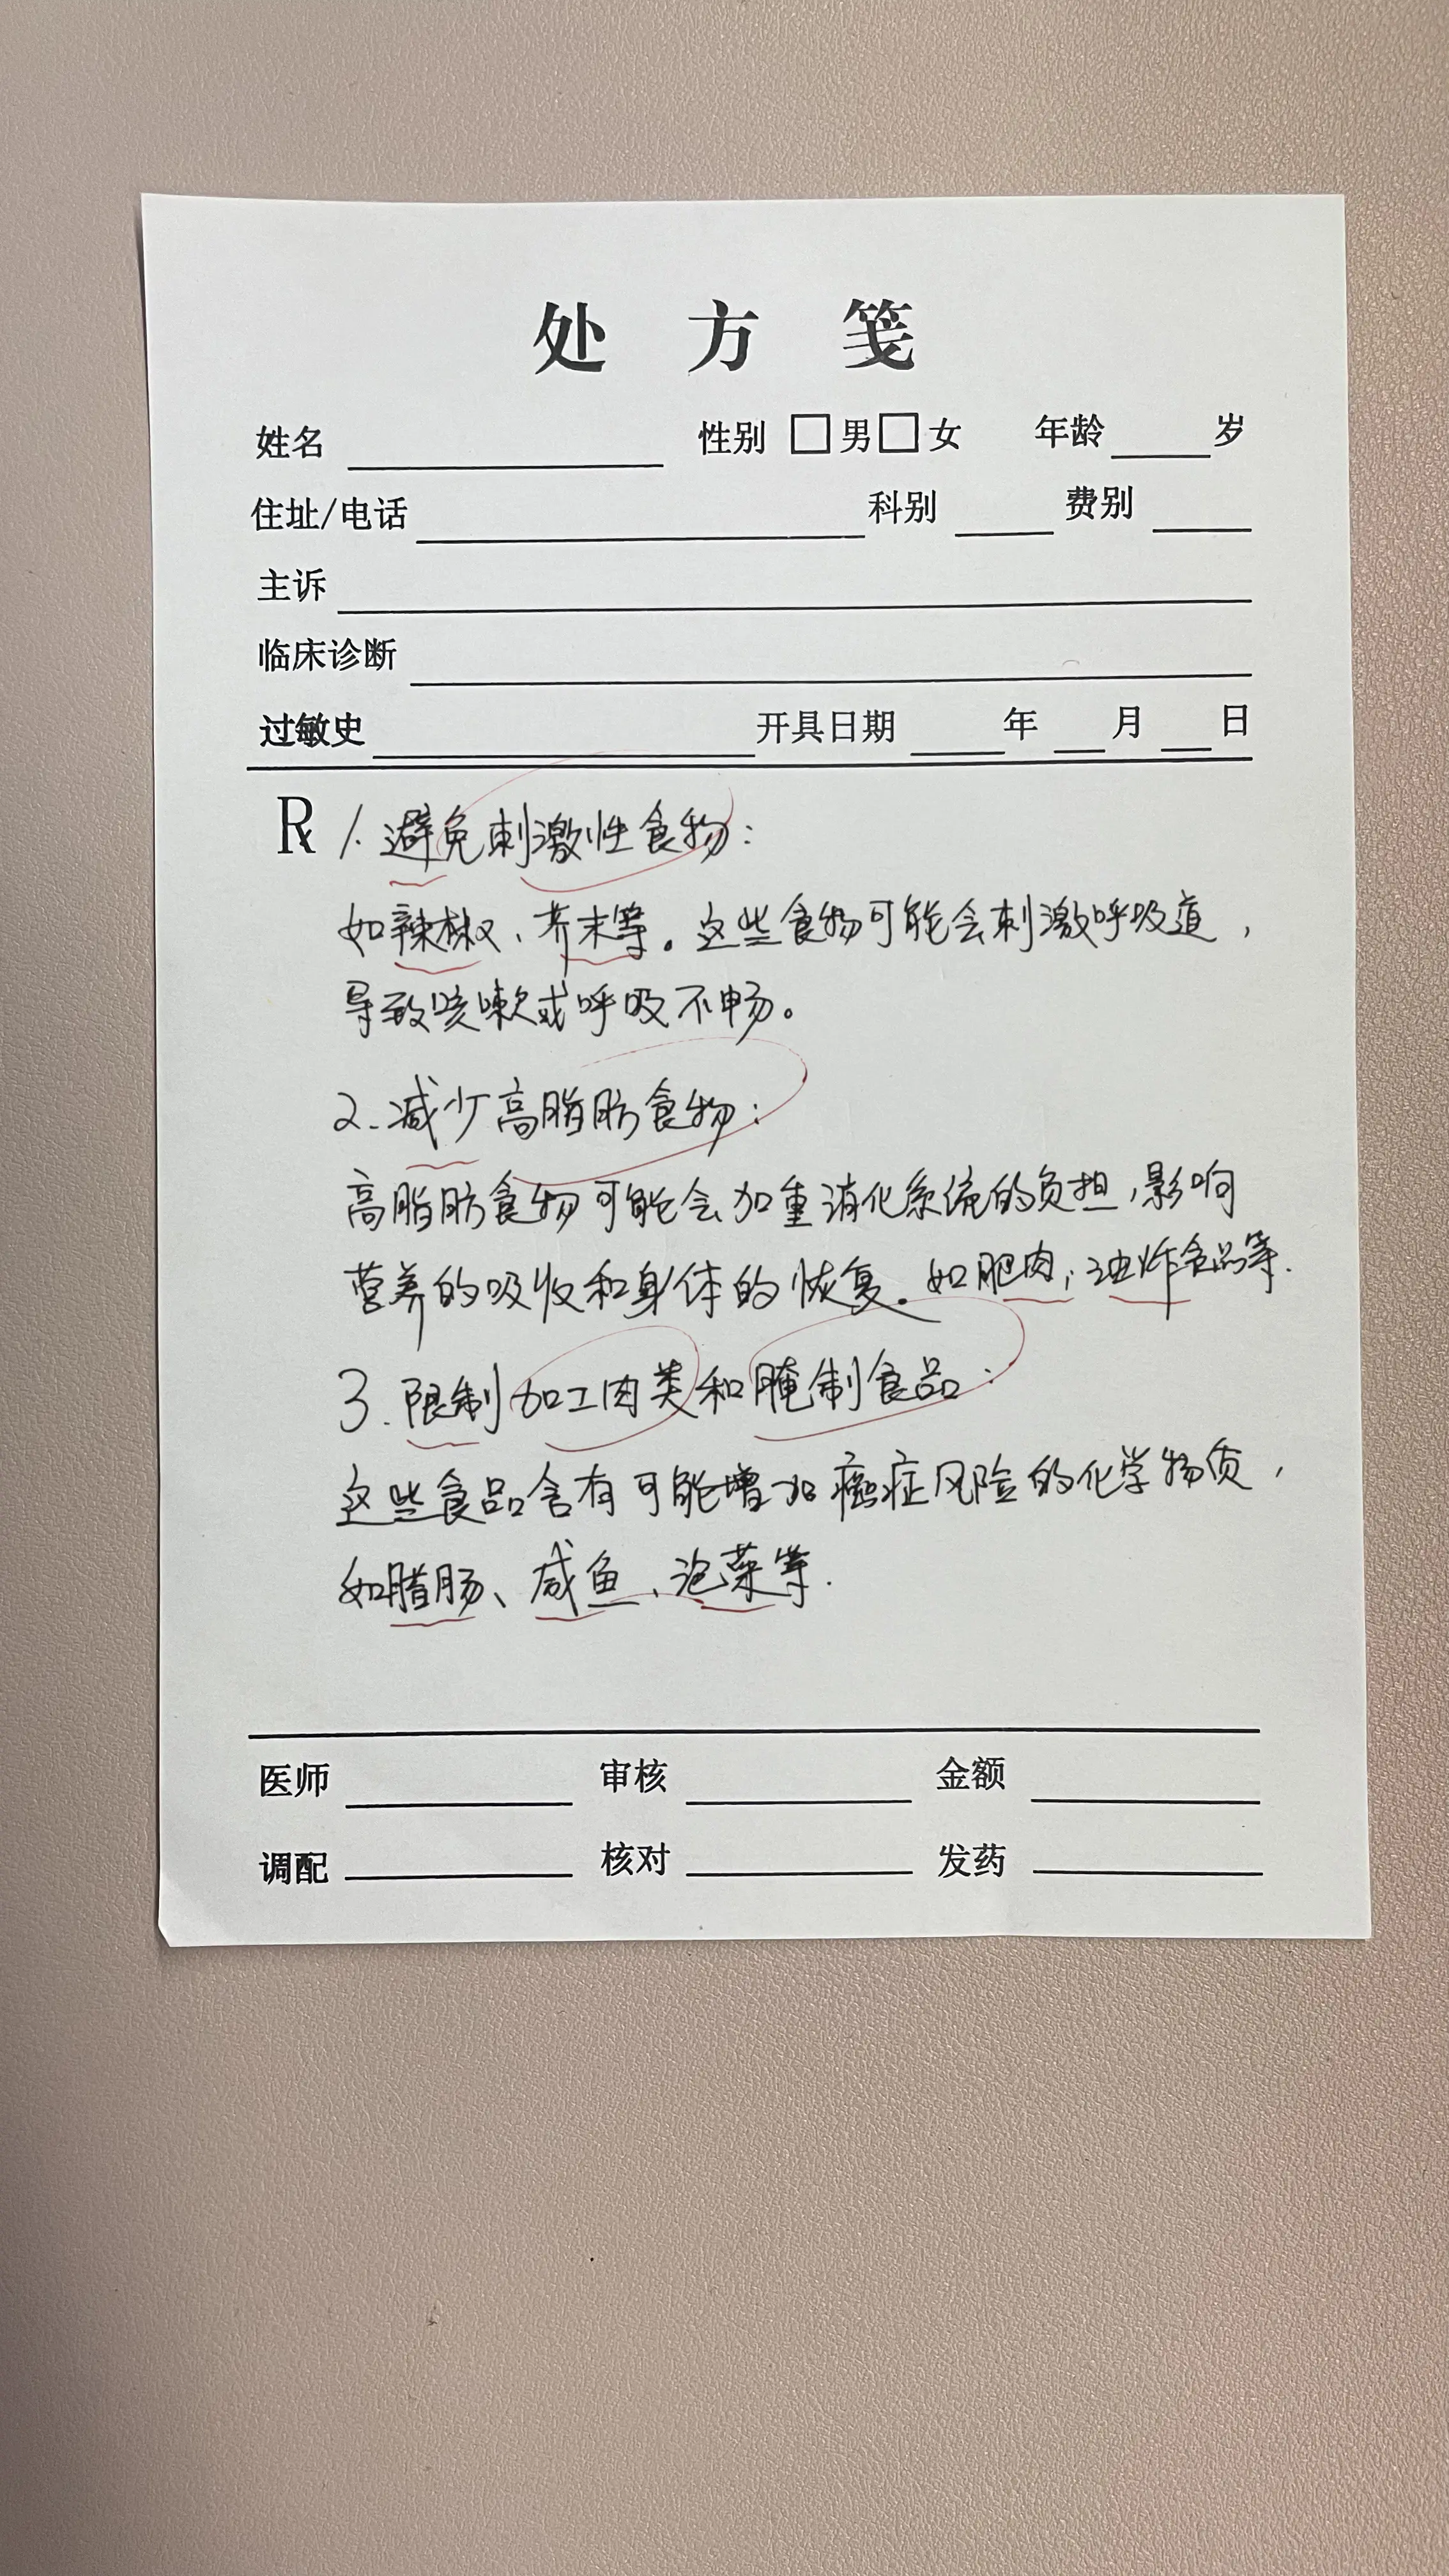 处方笺
姓名 性别 □男□女 年龄 岁
住址/电话 科别 费别
主诉
临床诊断
过敏史 开具日期 年 月 日
R 1.避免刺激性食物:
如辣椒、芥末等。这些食物可能会刺激呼吸道,
导致咳嗽或呼吸不畅。
2.减少高脂肪食物:
高脂肪食物可能会加重消化系统的负担,影响
营养的吸收和身体的恢复。如肥肉,油炸食品等.
3.限制加工肉类和腌制食品:
这些食品含有可能增加癌症风险的化学物质,
如腊肠、咸鱼、泡菜等.
医师 审核 金额
调配 核对 发药